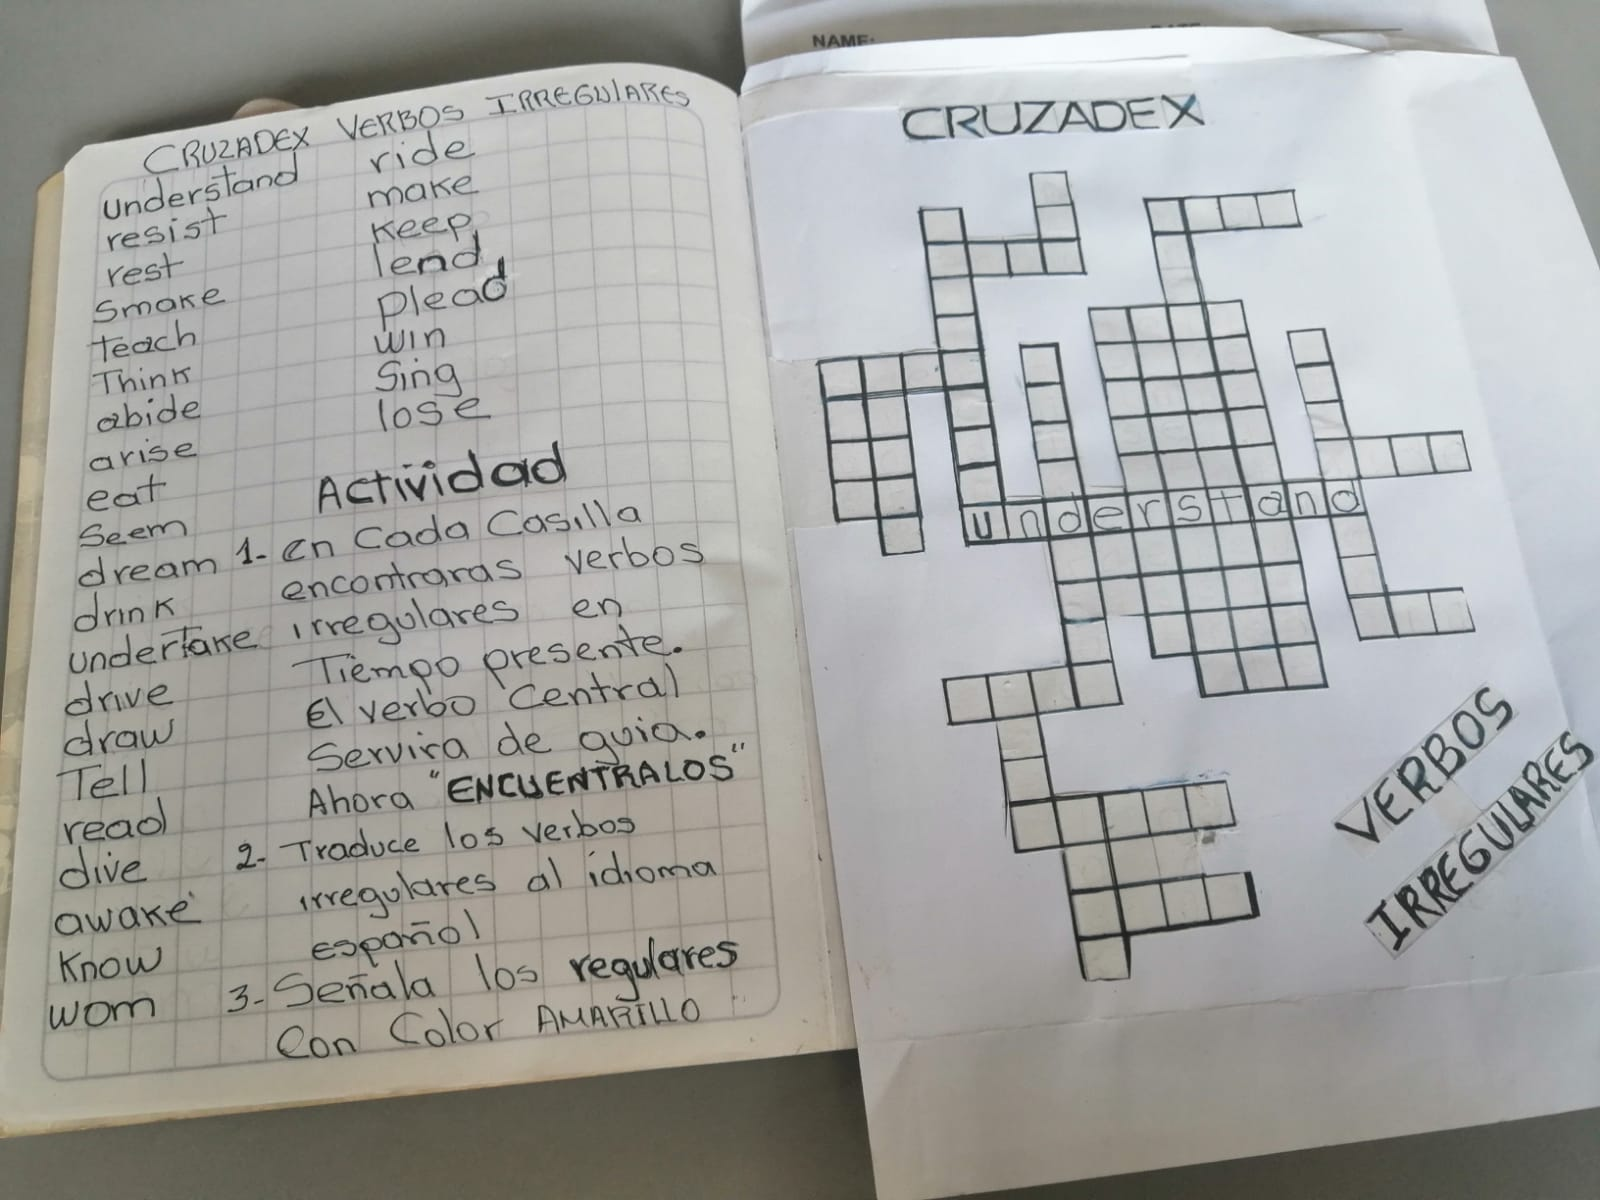 CRUZADEX VERBOS IRREGULARES
understand
resist
rest
Smoke
teach
Think
abide
arise
eat
Seem
dream
drink
undertake
drive
draw
Tell
read
dive
awake
Know
wom
ride
make
Keep
lend
plead
win
Sing
lose
Actividad
1- en Cada Casilla
encontraras verbos
irregulares en
Tiempo presente.
El verbo Central
Servira de guia.
Ahora "ENCUENTRALOS"
2- Traduce los verbos
irregulares al idioma
español
3- Señala los regulares
Con Color AMARILLO
NAME:
CRUZADEX
understand
VERBOS
IRREGULARES